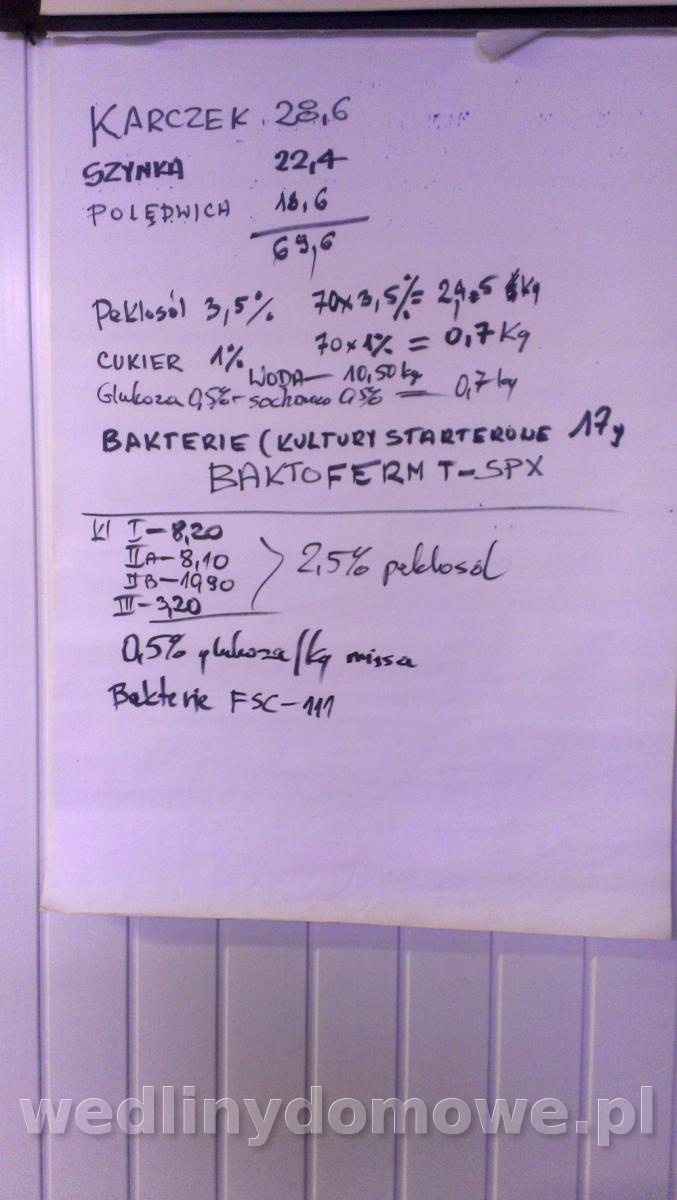 KARCZEK 28,6
SZYNKA 22,4
POLĘDWICA 18,6
69,6
Peklosól 3,5% 70x3,5%= Kg
CUKIER 1% 70x1% = 0,7 Kg
WODA— 10,50 kg
Glukoza 0,5% - 0,5% = 0,7 kg
BAKTERIE (KULTURY STARTEROWE 17g
BAKTOFERM T-SPX
Kl I-8,20
IIA-8,10
IIB-19,90
III-3,20
2,5% peklosól
0,5% glukoza/kg
Bakterie FSC-111
wedlinydomowe.pl